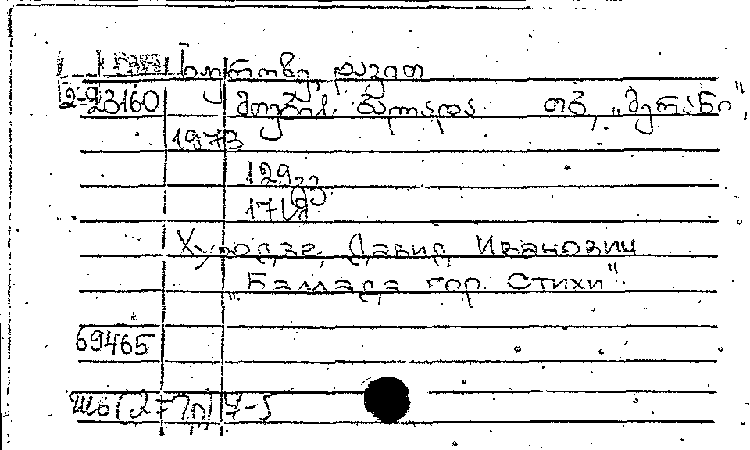 ხუროძე, დავით
2-23160 მთების ბალადა თბ, „მერანი",
1973
129გვ.
17სმ
Хуродзе, Давид Иванович
„Баллада гор. Стихи"
69465